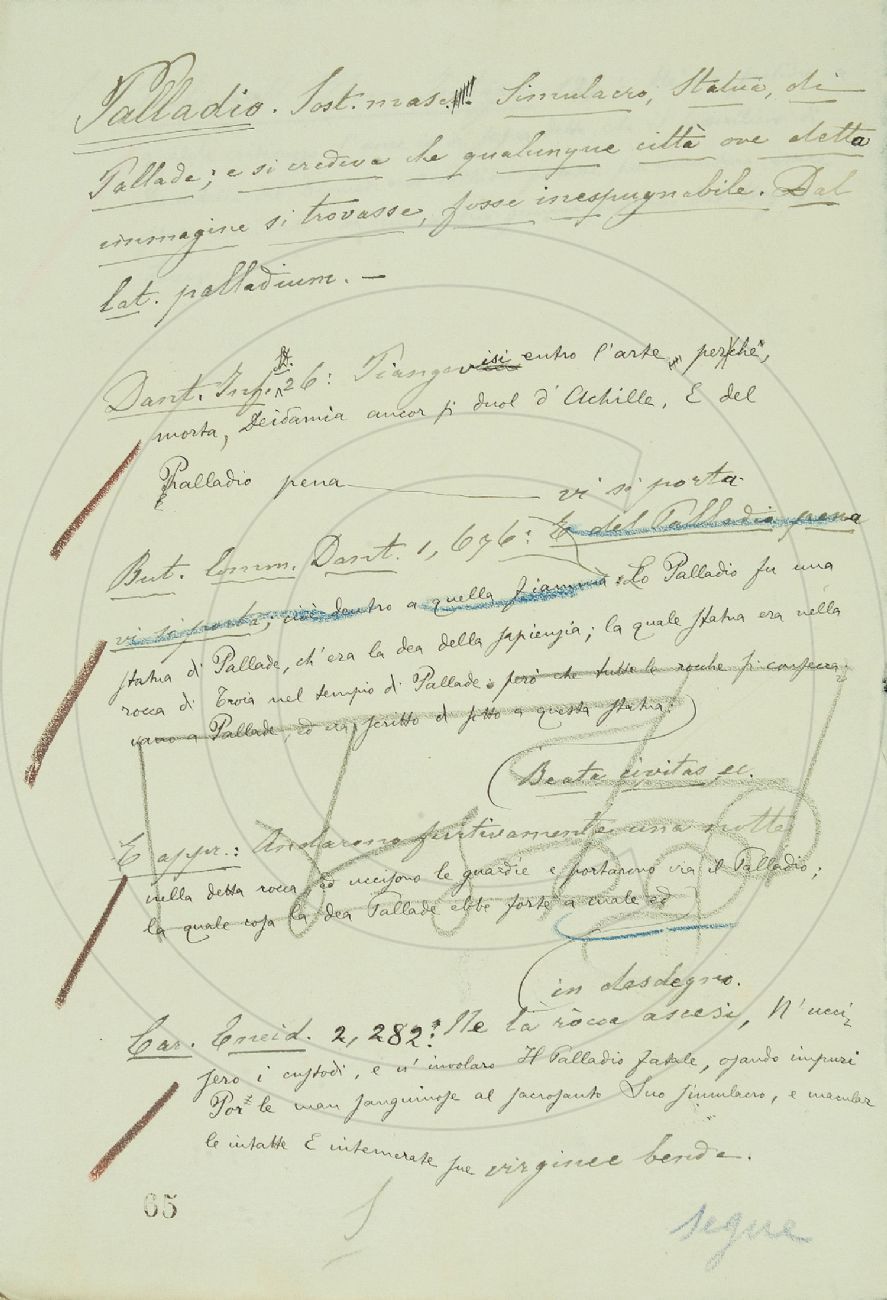 Palladio. Sost. masc. Simulacro, Statua, di
Pallade; e si credeva che qualunque città ove detta
immagine si trovasse, fosse inespugnabile. Dal
lat. palladium. —
Dant. Inf. 26: Piangevisi entro l'arte, perchè,
morta, Deidamia ancor si duol d'Achille, E del
Palladio pena
vi si porta.
But. Comm. Dant. 1, 676: E del Palladio pena
vi si porta; cioè dentro a quella fiamma. Lo Palladio fu una
statua di Pallade, ch'era la dea della sapienzia; la quale statua era nella
rocca di Troia nel tempio di Pallade, però che tutte le rocche si consecra-
vano a Pallade, ed era scritto di sotto a questa statua:
Beata civitas ec.
E appr.: Andarono furtivamente una notte
nella detta rocca, ed uccisono le guardie e portarono via il Palladio;
la quale cosa la dea Pallade ebbe forte a male ed
in desdegno.
Car. Eneid. 2, 282: Ne la ròcca ascesi, N'ucci-
sero i custodi, e n'involaro Il Palladio fatale, osando impuri
Por le man sanguinose al sacrosanto Suo simulacro, e macular
le intatte E intemerate sue virginee bende.
65
segue